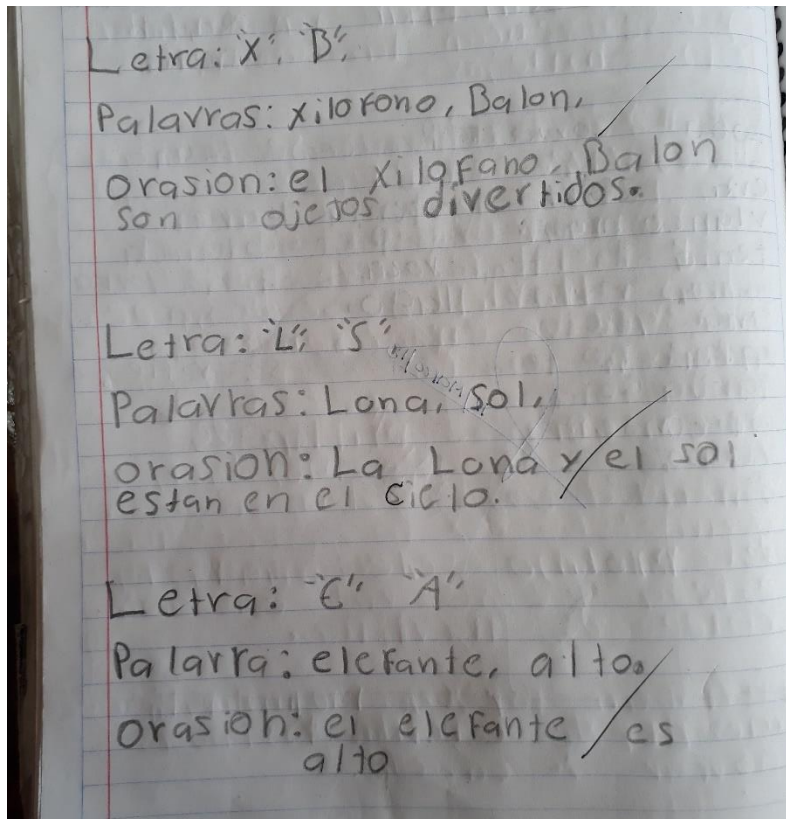 Letra: "X", "B",
Palavras: xilofono, Balon,
orasion: el xilofano, Balon
son ojetos divertidos.
Letra: "L", "S"
Palavras: Lona, sol,
orasion: La Lona y el sol
estan en el cielo.
Letra: "E" "A"
Palavra: elefante, alto.
orasion: el elefante es
alto